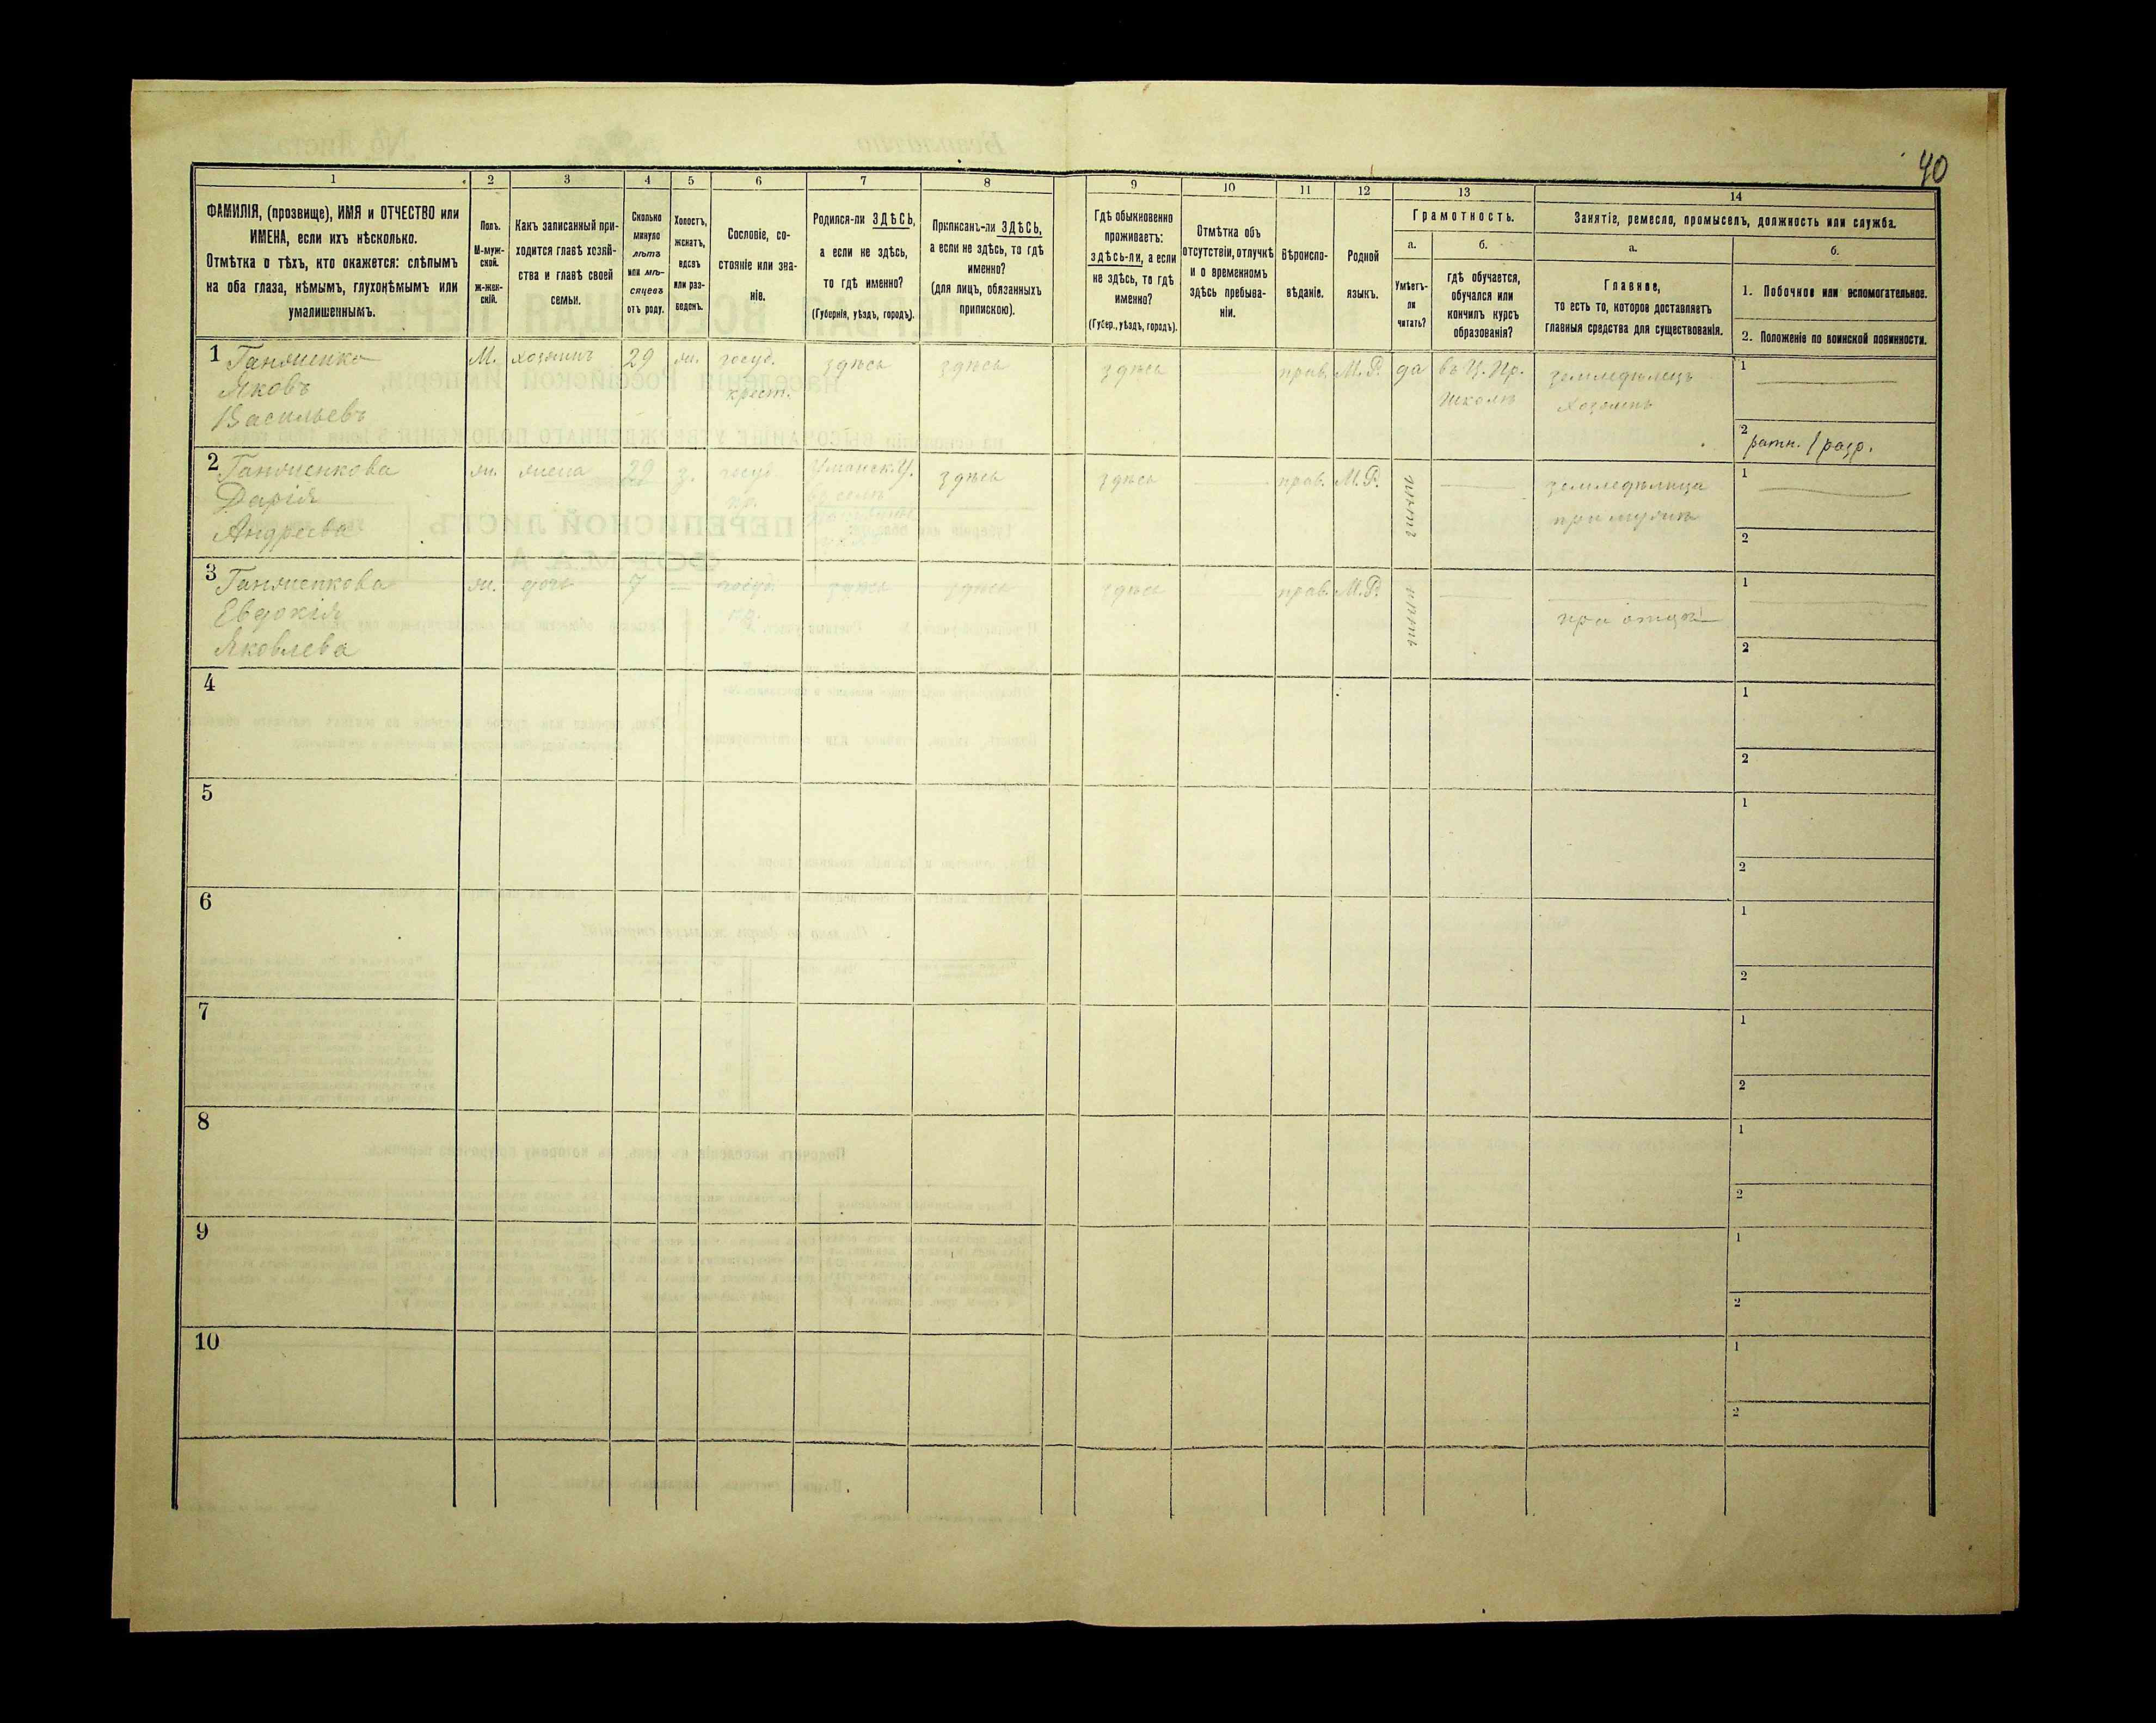 40
1 2 3 4 5 6 7 8 9 10 11 12 13 14
ФАМИЛІЯ, (прозвище), ИМЯ и ОТЧЕСТВО или
ИМЕНА, если ихъ нѣсколько.
Отмѣтка о тѣхъ, кто окажется: слѣпымъ
на оба глаза, нѣмымъ, глухонѣмымъ или
умалишеннымъ.
Полъ.
М-муж-
ской.
ж-жен-
скій.
Какъ записанный при-
ходится главѣ хозяй-
ства и главѣ своей
семьи.
Сколько
минуло
лѣтъ
или мѣ-
сяцевъ
отъ роду.
Холостъ,
женатъ,
вдовъ
или раз-
веденъ.
Сословіе, со-
стояніе или зва-
ніе.
Родился-ли ЗДѢСЬ,
а если не здѣсь,
то гдѣ именно?
(Губернія, уѣздъ, городъ).
Приписанъ-ли ЗДѢСЬ,
а если не здѣсь, то гдѣ
именно?
(для лицъ, обязанныхъ
припискою).
Гдѣ обыкновенно
проживаетъ:
здѣсь-ли, а если
не здѣсь, то гдѣ
именно?
(Губер., уѣздъ, городъ).
Отмѣтка объ
отсутствіи, отлучкѣ
и о временномъ
здѣсь пребыва-
ніи.
Вѣроиспо-
вѣданіе.
Родной
языкъ.
Грамотность.
а.
Умѣетъ-
ли
читать?
б.
гдѣ обучается,
обучался или
кончилъ курсъ
образованія?
Занятіе, ремесло, промыселъ, должность или служба.
а.
Главное,
то есть то, которое доставляетъ
главныя средства для существованія.
б.
1. Побочное или вспомогательное.
2. Положеніе по воинской повинности.
1
Яковъ
Васильевъ
М.
хозяинъ
29
ж.
госуд.
крест.
здѣсь
здѣсь
здѣсь
прав.
М.Р.
да
въ Ц. Пр.
школѣ
земледѣлецъ
хозяинъ
1
2
ратн. 1 разр.
2
Дарія
Андреева
ж.
жена
29
з.
госуд
кр.
здѣсь
здѣсь
прав.
М.Р.
земледѣлица
при мужѣ
1
2
3
Евдокія
Яковлева
ж.
дочь
7
госуд
кр.
здѣсь
здѣсь
здѣсь
прав.
М.Р.
при отцѣ
1
2
4
1
2
5
1
2
6
1
2
7
1
2
8
1
2
9
1
2
10
1
2